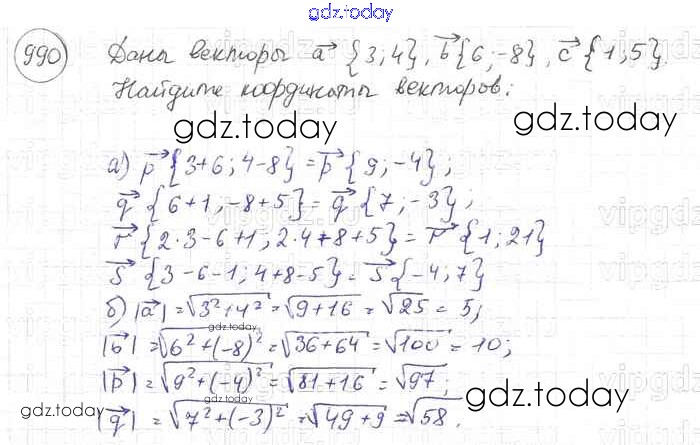 gdz.today
990 Даны векторы a⃗ {3;4}, b⃗ {6;-8}, c⃗ {1;5}.
Найдите координаты векторов:
gdz.today gdz.today
а) p⃗ {3+6; 4-8} = p⃗ {9; -4};
q⃗ {6+1; -8+5} = q⃗ {7; -3};
r⃗ {2·3-6+1; 2·4+8+5} = r⃗ {1; 21}
s⃗ {3-6-1; 4+8-5} = s⃗ {-4; 7}
б) |a⃗| = √3²+4² = √9+16 = √25 = 5;
gdz.today
|b⃗| = √6²+(-8)² = √36+64 = √100 = 10;
|p⃗| = √9²+(-4)² = √81+16 = √97;
gdz.today gdz.today
|q⃗| = √7²+(-3)² = √49+9 = √58.
gdz.today